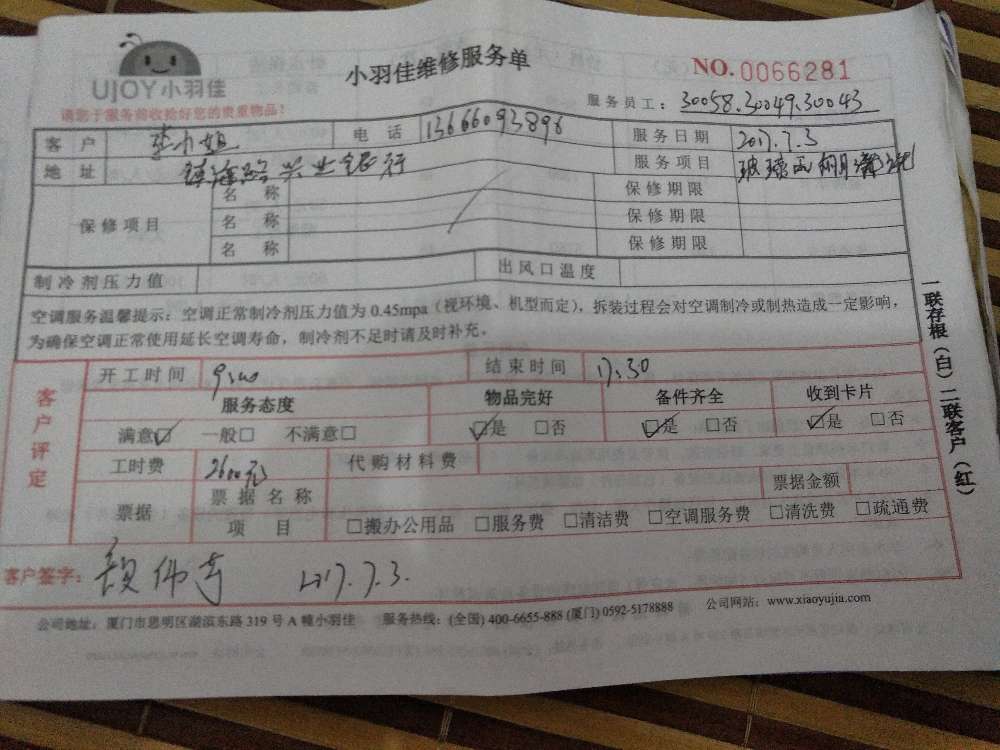 UJOY小羽佳
小羽佳维修服务单
NO.0066281
请您于服务前收拾好您的贵重物品!
服务员工: 30058.30049.30043
客户 小姐 电话 13666093896 服务日期 2017.7.3
地址 镇海路兴业银行 服务项目 玻璃
保修项目 名称 保修期限
名称 保修期限
名称 保修期限
制冷剂压力值 出风口温度
空调服务温馨提示:空调正常制冷剂压力值为0.45mpa(视环境、机型而定),拆装过程会对空调制冷或制热造成一定影响,
为确保空调正常使用延长空调寿命,制冷剂不足时请及时补充。
客户评定
开工时间 9:00 结束时间 17:30
服务态度 物品完好 备件齐全 收到卡片
满意☑ 一般□ 不满意□ ☑是 □否 ☑是 □否 ☑是 □否
工时费 2600元 代购材料费
票据 票据名称 票据金额
项目 □搬办公用品 □服务费 □清洁费 □空调服务费 □清洗费 □疏通费
客户签字: 2017.7.3.
公司地址:厦门市思明区湖滨东路319号A幢小羽佳 服务热线:(全国)400-6655-888(厦门)0592-5178888 公司网站:www.xiaoyujia.com
一联存根(白)二联客户(红)